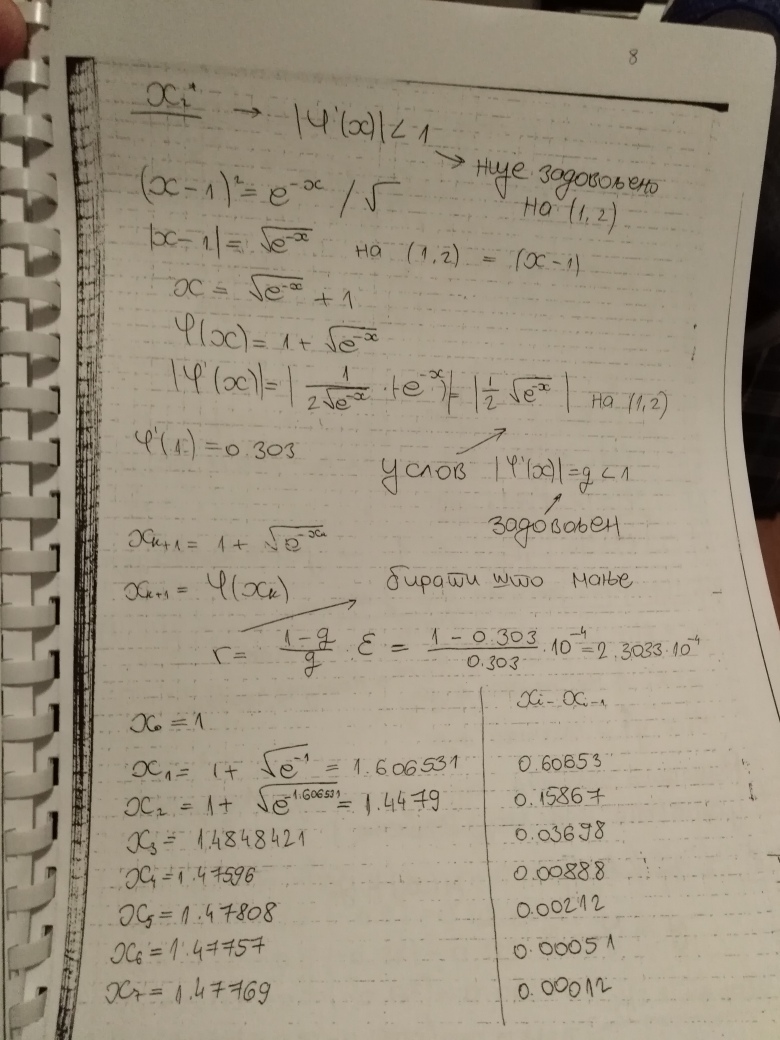 8
x₂* → |φ'(x)| < 1
→ није задовољено
на (1,2)
(x-1)² = e^{-x} /√
|x-1| = √(e^{-x}) на (1,2) = (x-1)
x = √(e^{-x}) + 1
φ(x) = 1 + √(e^{-x})
|φ'(x)| = |1/(2√(e^{-x})) · (-e^{-x})| = |1/2 √(e^{-x})| на (1,2)
φ'(1) = 0.303
услов |φ'(x)| = g < 1
задовољен
x_{k+1} = 1 + √(e^{-x_k})
x_{k+1} = φ(x_k)
бирати што мање
r = (1-g)/g · ε = (1-0.303)/0.303 · 10^{-4} = 2.3033 · 10^{-4}
x₀ = 1 | x_i - x_{i-1}
x₁ = 1 + √(e^{-1}) = 1.606531 | 0.60653
x₂ = 1 + √(e^{-1.606531}) = 1.4479 | 0.15867
x₃ = 1.4848421 | 0.03698
x₄ = 1.47596 | 0.00888
x₅ = 1.47808 | 0.00212
x₆ = 1.47757 | 0.00051
x₇ = 1.47769 | 0.00012